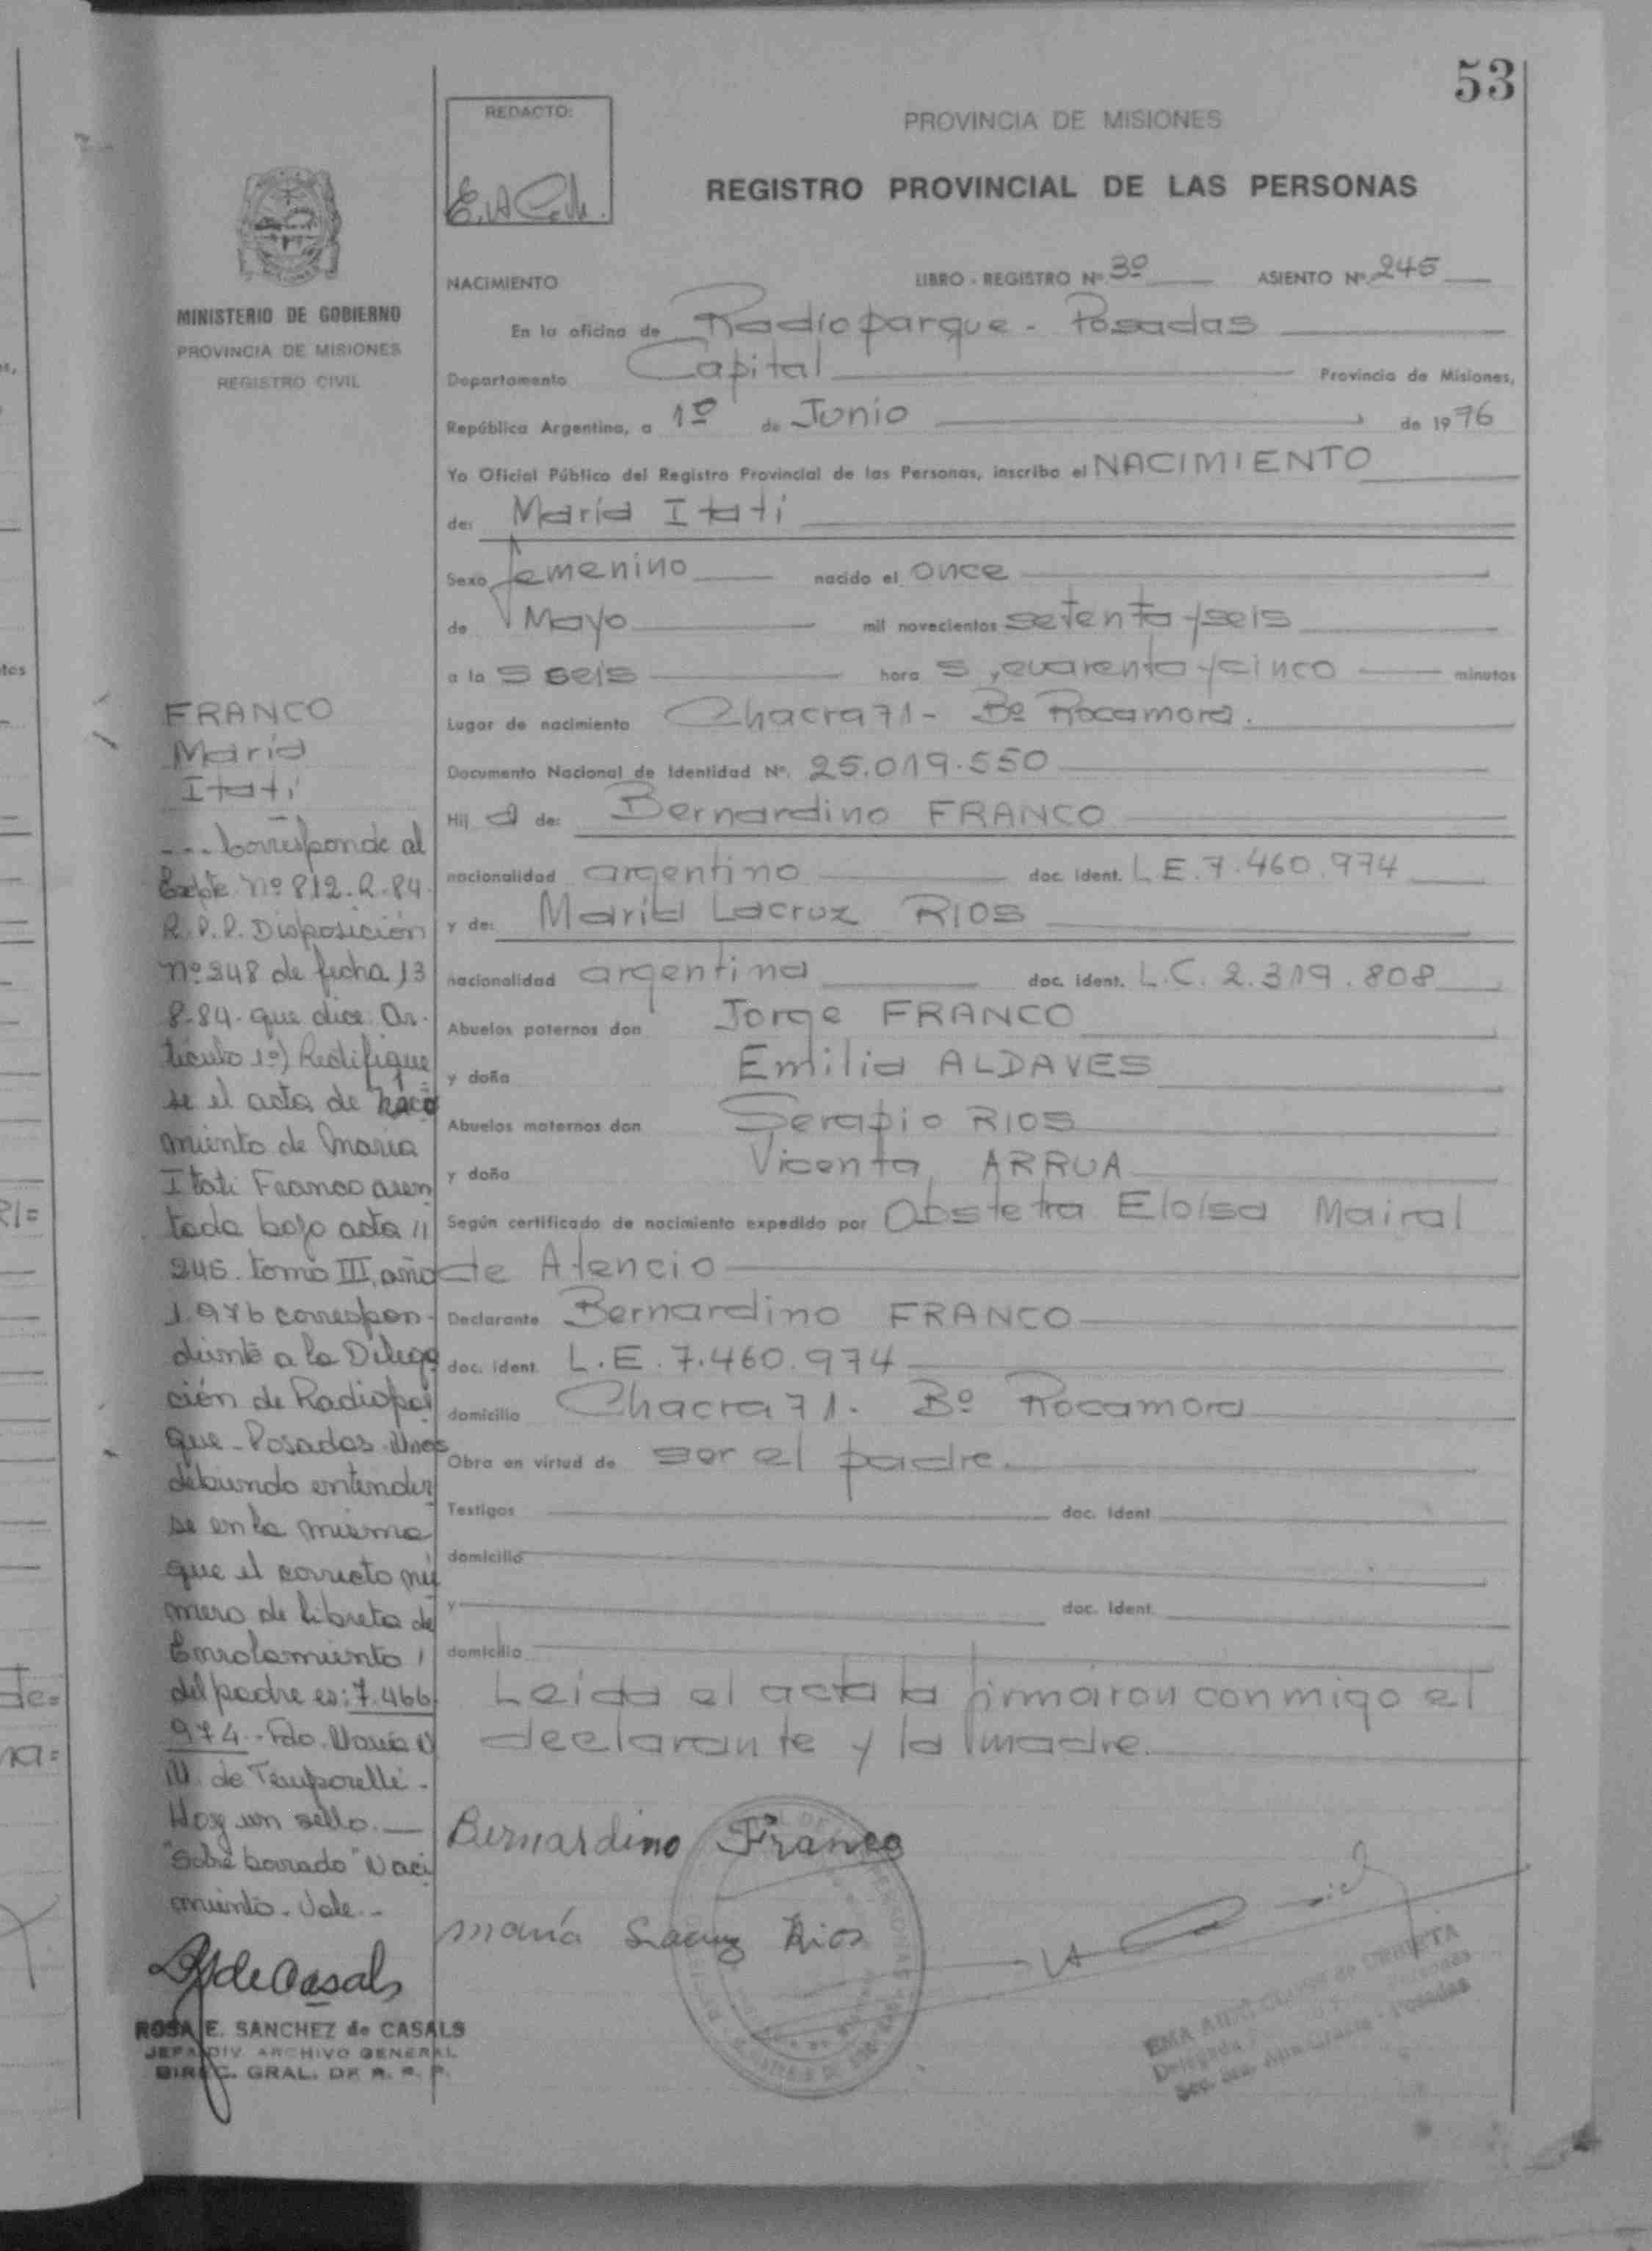 53
REDACTO:
PROVINCIA DE MISIONES
REGISTRO PROVINCIAL DE LAS PERSONAS
MINISTERIO DE GOBIERNO
PROVINCIA DE MISIONES
REGISTRO CIVIL
NACIMIENTO LIBRO - REGISTRO Nº 3º ASIENTO Nº 245
En la oficina de Radioparque - Posadas
Departamento Capital Provincia de Misiones,
República Argentina, a 1º de Junio de 1976
Yo Oficial Público del Registro Provincial de las Personas, inscribo el NACIMIENTO
de: María Itati
Sexo femenino nacido el once
de Mayo mil novecientos setenta y seis
a la s seis hora s, cuarenta y cinco minutos
Lugar de nacimiento Chacra 71 - Bº Rocamora.
Documento Nacional de Identidad Nº. 25.019.550
Hij a de: Bernardino FRANCO
nacionalidad argentino doc. ident. L.E. 7.460.974
y de: María Lacruz RIOS
nacionalidad argentina doc. ident. L.C. 2.319.808
Abuelos paternos don Jorge FRANCO
y doña Emilia ALDAVES
Abuelos maternos don Serapio RIOS
y doña Vicenta ARRUA
Según certificado de nacimiento expedido por Obstetra Eloísa Mairal
de Atencio
Declarante Bernardino FRANCO
doc. ident. L.E. 7.460.974
domicilio Chacra 71. Bº Rocamora
Obra en virtud de ser el padre.
Testigos doc. ident.
domicilio
y doc. ident.
domicilio
Leida el acta la firmaron conmigo el
declarante y la madre.
Bernardino Franco
María Lacruz Rios
FRANCO
María
Itati
--- Corresponde al
Expte Nº 812-R-84
R.P.P. Disposición
nº 348 de fecha 13
8-84- que dice: Ar-
tículo 1º) Rectifique
se el acta de naci
miento de Maria
Itati Franco asen
tada bajo acta
245. tomo III, año
1.976 correspon-
diente a la Delega
ción de Radiopar
que - Posadas - Mnes
debiendo entender
se en la misma
que el correcto nú
mero de Libreta de
Enrolamiento
del padre es: 7.466
974.- Fdo. María
de Temporelli -
Hay un sello.—
"Sobre borrado" Naci
miento. Vale.-
ROSA E. SANCHEZ de CASALS
JEFA DIV. ARCHIVO GENERAL
DIREC. GRAL. DE R. P. P.